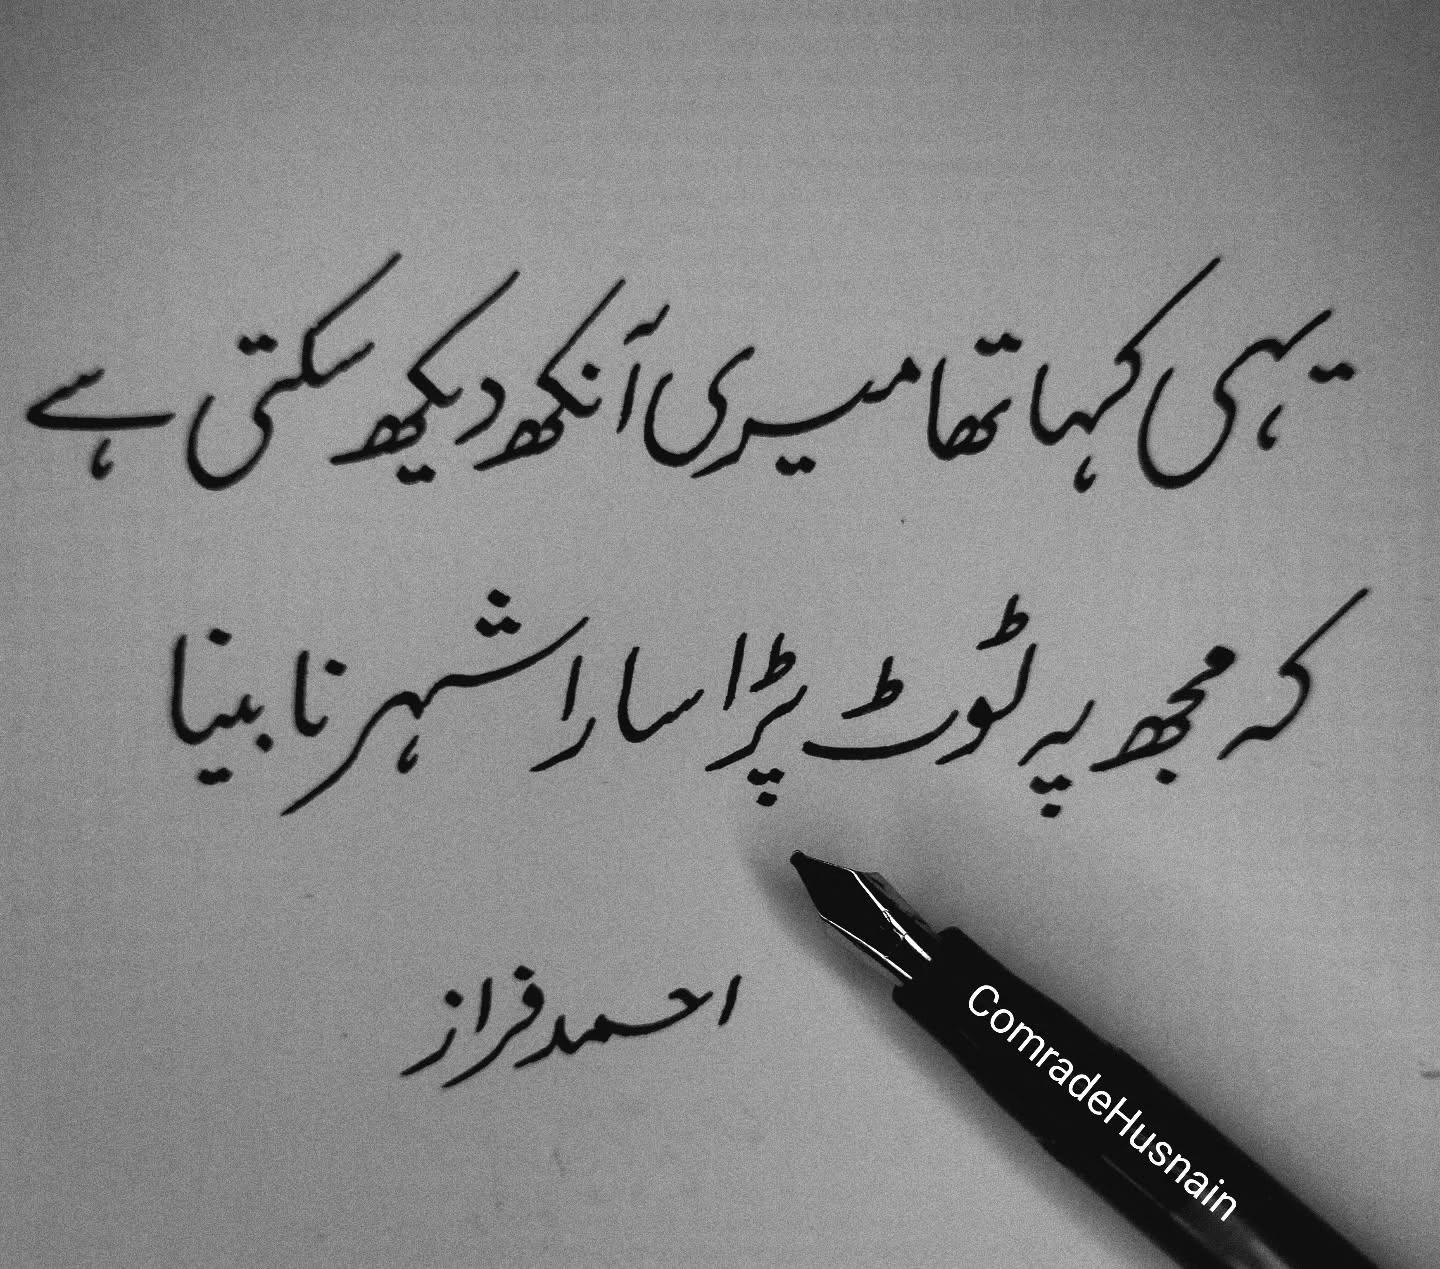 یہی کہا تھا میری آنکھ دیکھ سکتی ہے
کہ مجھ پہ ٹوٹ پڑا سارا شہر نابینا
احمد فراز
ComradeHusnain